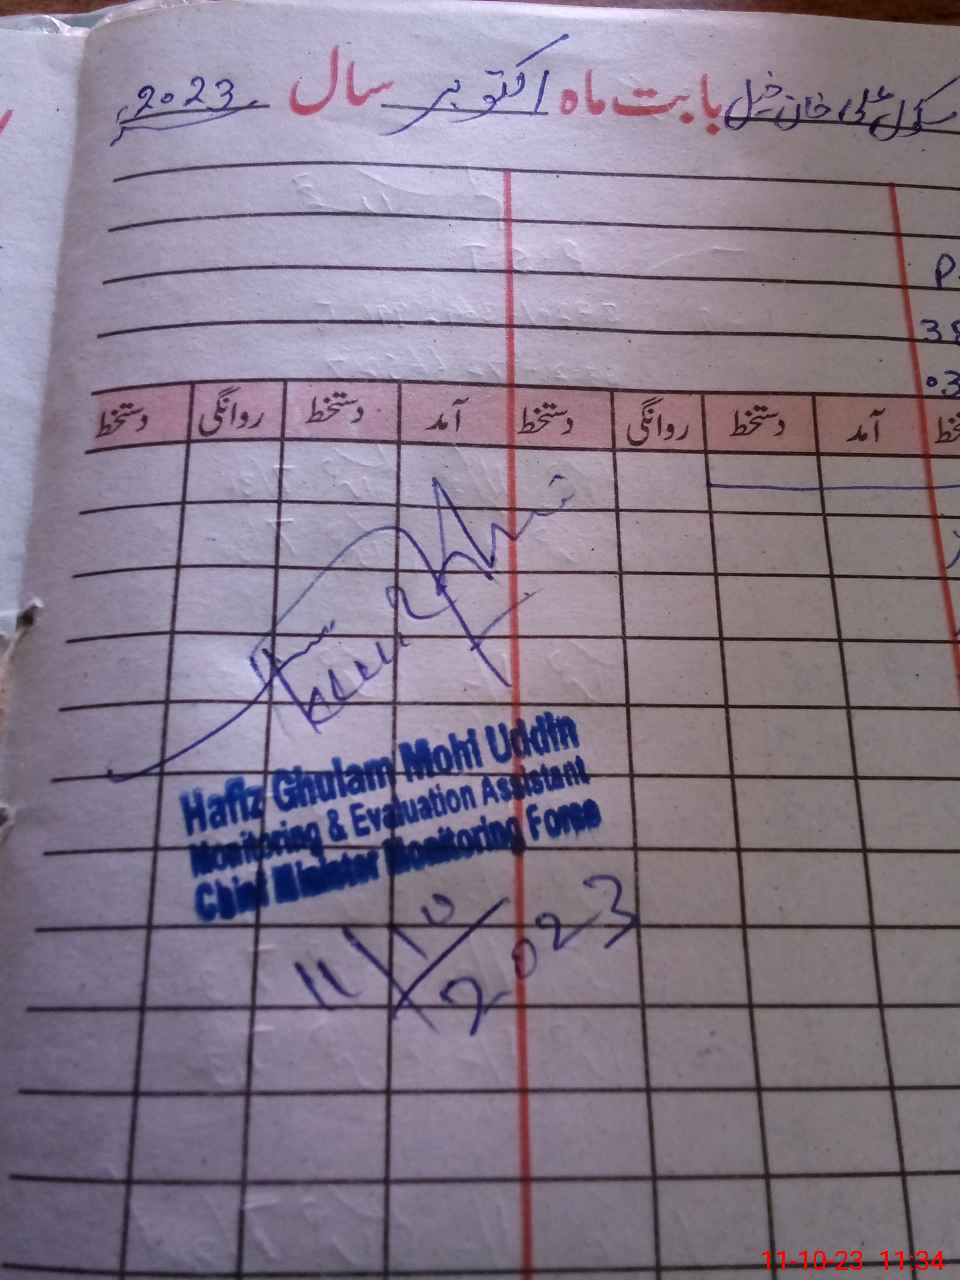 سکول علی خان خیل بابت ماه اکتوبر سال 2023
P.
38
0.3
آمد دستخط روانگی دستخط آمد دستخط روانگی دستخط
Hafiz Ghulam Mohi Uddin
Monitoring & Evaluation Assistant
Chief Minister Monitoring Force
11/10/2023
11-10-23 11:34